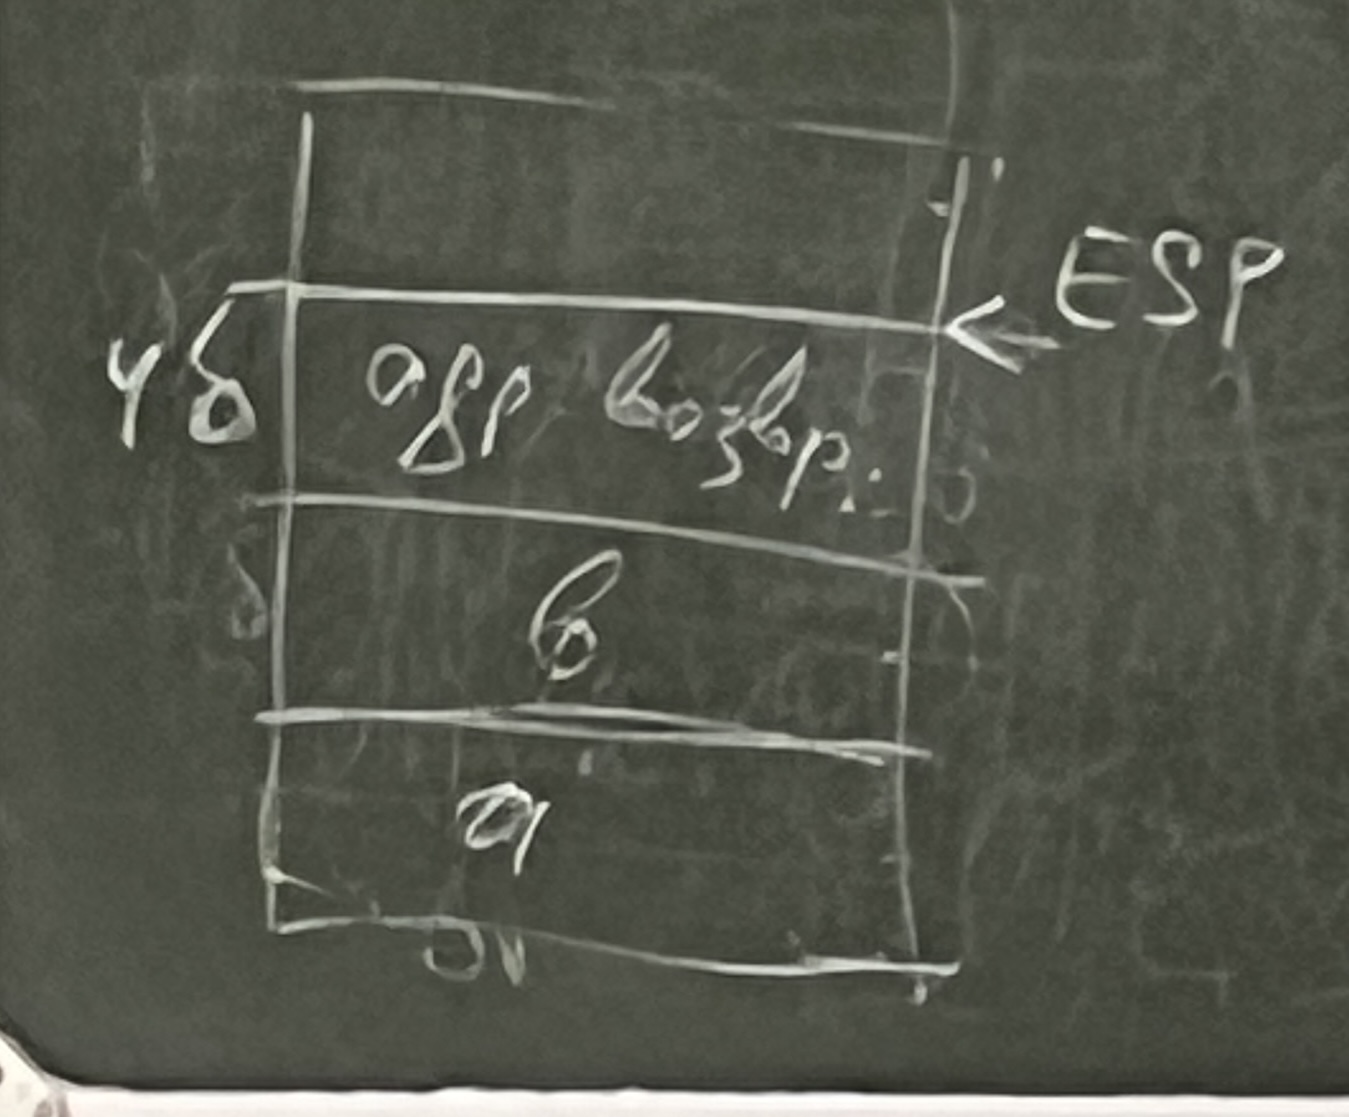 ESP
4б адр возвр.
в
а